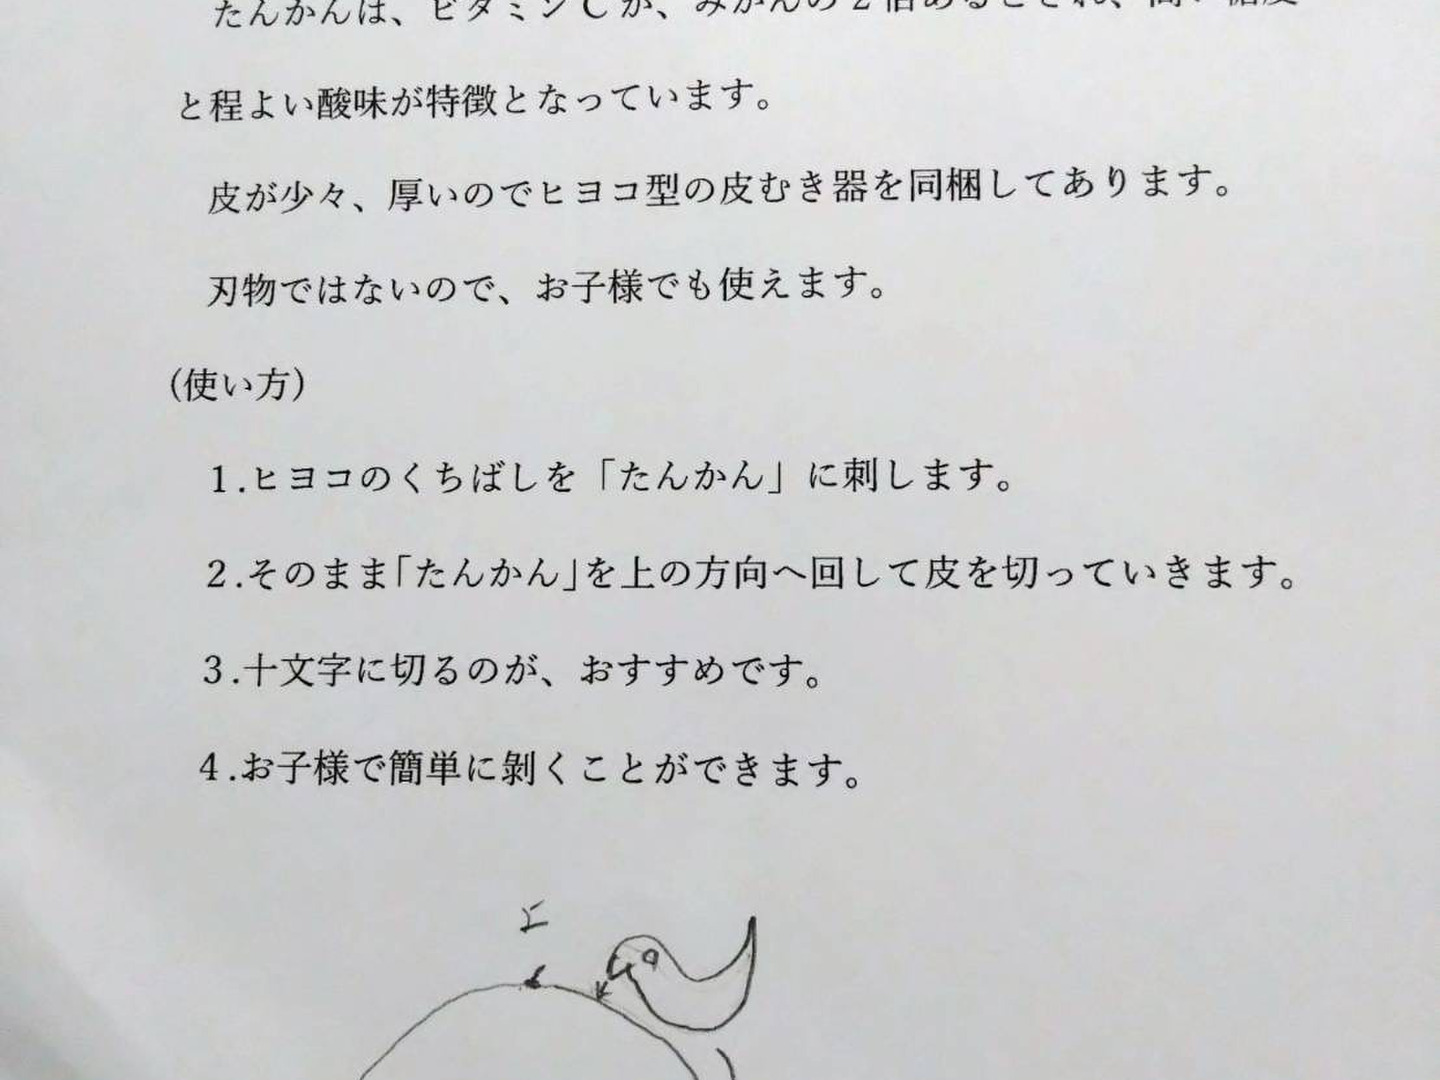 たんかんは、ビタミンCが、みかんの2倍あるとされ、高い糖度
と程よい酸味が特徴となっています。
皮が少々、厚いのでヒヨコ型の皮むき器を同梱してあります。
刃物ではないので、お子様でも使えます。
(使い方)
1.ヒヨコのくちばしを「たんかん」に刺します。
2.そのまま「たんかん」を上の方向へ回して皮を切っていきます。
3.十文字に切るのが、おすすめです。
4.お子様で簡単に剝くことができます。
上